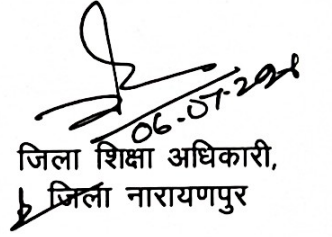 06-07-2021
जिला शिक्षा अधिकारी,
जिला नारायणपुर